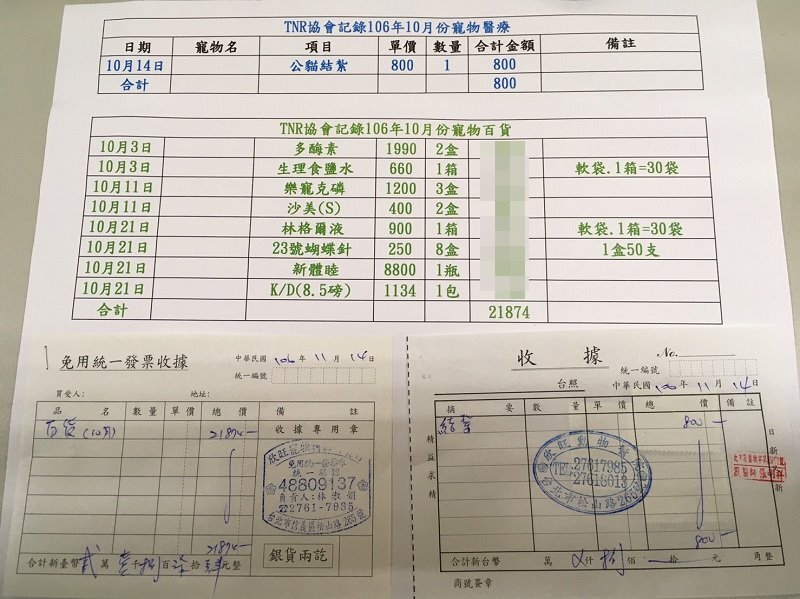 TNR協會記錄106年10月份寵物醫療
日期 寵物名 項目 單價 數量 合計金額 備註
10月14日 公貓結紮 800 1 800
合計 800
TNR協會記錄106年10月份寵物百貨
10月3日 多酶素 1990 2盒
10月3日 生理食鹽水 660 1箱 軟袋.1箱=30袋
10月11日 樂寵克磷 1200 3盒
10月11日 沙美(S) 400 2盒
10月21日 林格爾液 900 1箱 軟袋.1箱=30袋
10月21日 23號蝴蝶針 250 8盒 1盒50支
10月21日 新體睦 8800 1瓶
10月21日 K/D(8.5磅) 1134 1包
合計 21874
免用統一發票收據
中華民國 106 年 11 月 14 日
統一編號
買受人: 地址:
品名 數量 單價 總價 備註
百貨(10月) 21874-
收據專用章
免用統一發票
統一編號
48809137
負責人:林淑娟
台北市信義區松山路265號
21874-
銀貨兩訖
合計新臺幣 貳 萬 壹 千 捌 百 柒 拾 肆 元整
收據
No.
統一編號
台照 中華民國 106 年 11 月 14 日
摘要 數量 單價 總價 備註
結紮 800-
欣旺動物醫院
TEL:27617985
27618013
台北市松山路265號
精益求精
日新又新
800-
合計新台幣 萬 仟 捌 佰 拾 元 角整
商號簽章